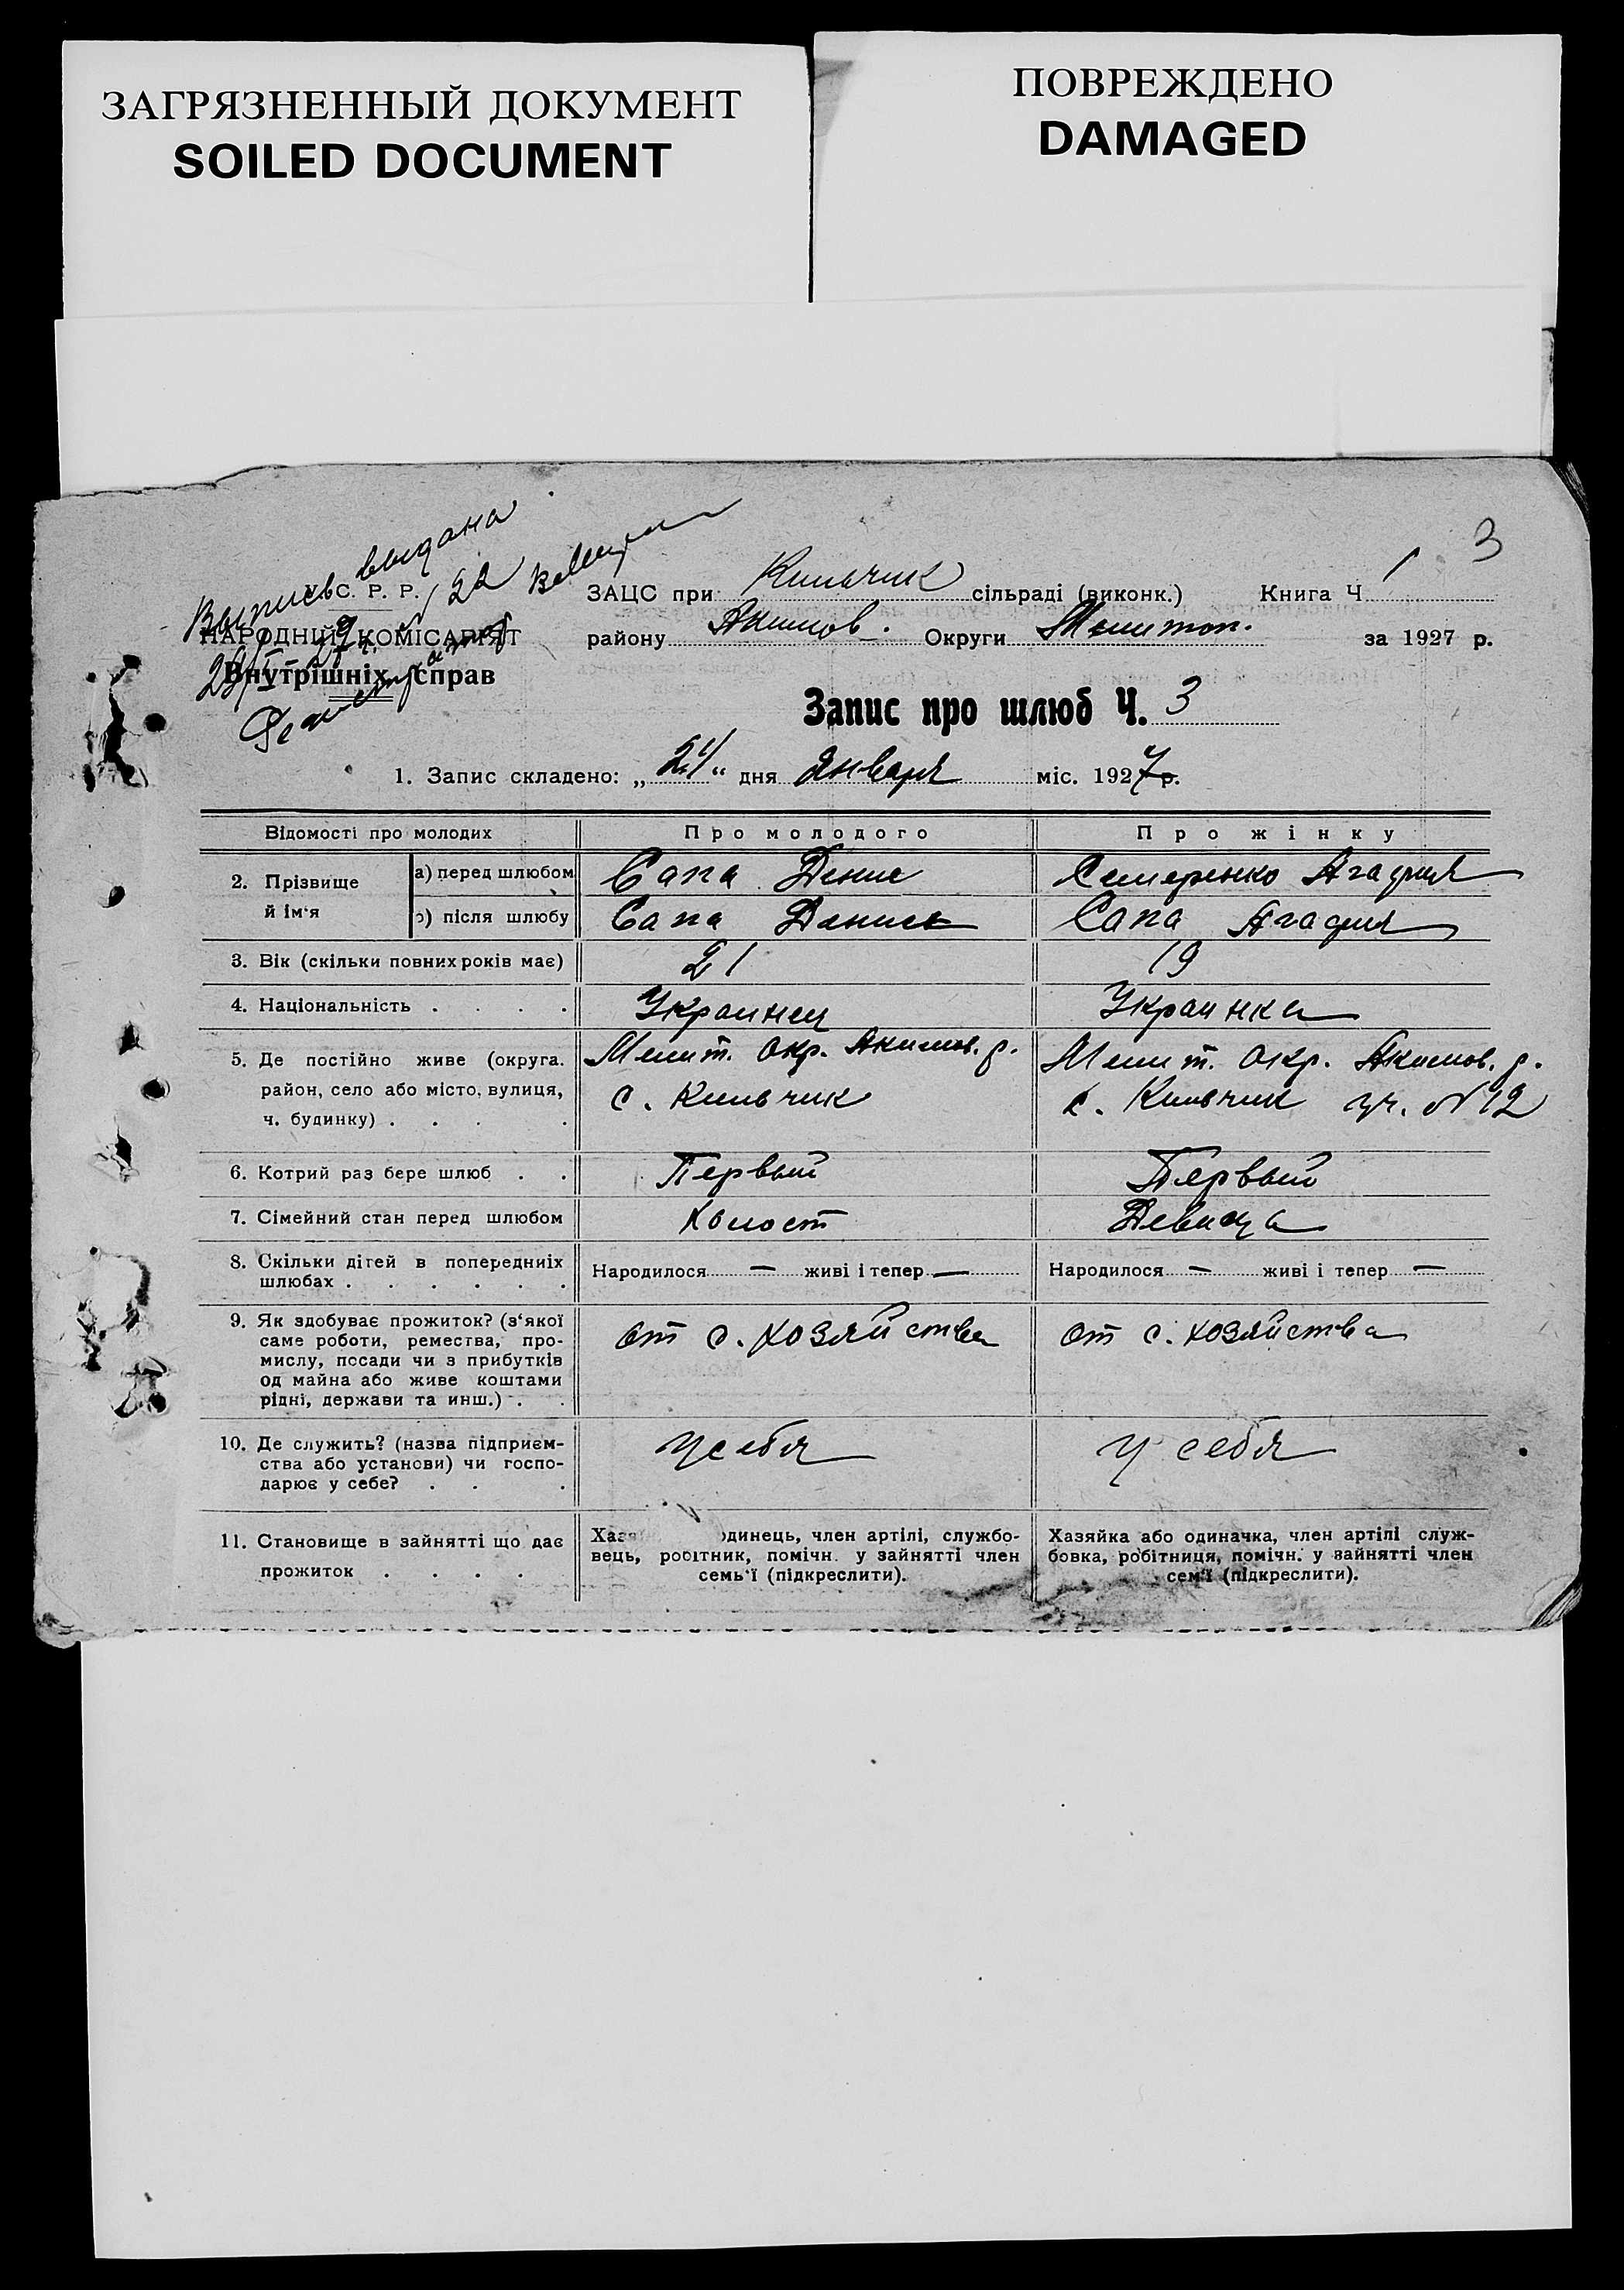 ЗАГРЯЗНЕННЫЙ ДОКУМЕНТ
SOILED DOCUMENT
ПОВРЕЖДЕНО
DAMAGED
3
Выпись выдана
24/I 27 г. N 22
У. С. Р. Р.
НАРОДНИЙ КОМІСАРІЯТ
Внутрішніх справ
ЗАЦС при Кильчик сільраді (виконк.) Книга Ч 1
району Акимов. Округи Мелитоп. за 1927 р.
Запис про шлюб Ч. 3
1. Запис складено: „24“ дня Января міс. 1927 р.
Відомості про молодих
Про молодого
Про жінку
2. Прізвище й ім‘я
а) перед шлюбом
Сапа Денис
Семеренко Агафия
б) після шлюбу
Сапа Денис
Сапа Агафия
3. Вік (скільки повних років має)
21
19
4. Національність . . . .
Украинец
Украинка
5. Де постійно живе (округа. район, село або місто, вулиця, ч. будинку) . . . .
Мелит. окр. Акимов. р.
с. Кильчик
Мелит. окр. Акимов. р.
с. Кильчик уч. N 12
6. Котрий раз бере шлюб . .
Первый
Первый
7. Сімейний стан перед шлюбом
Холост
Девица
8. Скільки дітей в попередніх шлюбах . . . . . .
Народилося — живі і тепер —
Народилося — живі і тепер —
9. Як здобуває прожиток? (з‘якої
саме роботи, ремества, про-
мислу, посади чи з прибутків
од майна або живе коштами
рідні, держави та инш.) . .
от с. хозяйства
от с. хозяйства
10. Де служить? (назва підприєм-
ства або установи) чи госпо-
дарює у себе? . . .
у себя
у себя
11. Становище в зайнятті що дає
прожиток . . . .
динець, член артілі, службо-
вець, робітник, помічн. у зайнятті член
семь‘ї (підкреслити).
Хазяйка або одиначка, член артілі служ-
бовка, робітниця, помічн. у зайнятті член
сем‘ї (підкреслити).